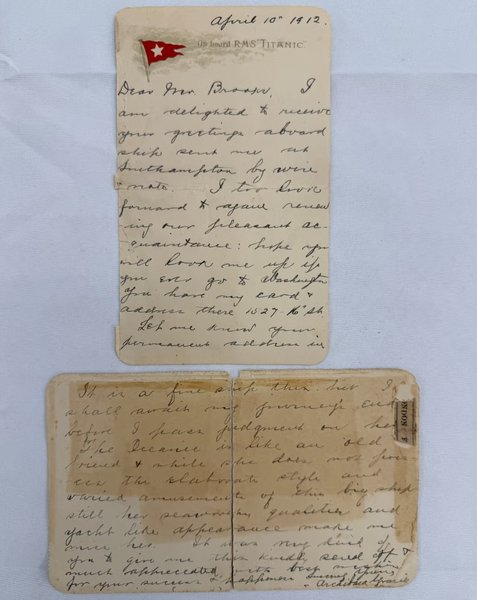 April 10th 1912.
On board RMS "TITANIC".
Dear Mrs. Brooks, I
am delighted to receive
your greetings aboard
ship sent me at
Southampton by wire
& note. I too look
forward to again renew
ing our pleasant ac-
quaintance: hope you
will look me up if
you ever go to Washington
You have my card &
address there 1527-16th st
Let me know your
permanent address in
It is a fine ship this but I
shall await my journeys end
before I pass judgment on her
The Oceanic is like an old
friend & while she does not poss-
ess the elaborate style and
varied amusements of this big ship
still her seaworthy qualities and
yacht like appearance make me
miss her. It was very kind of
you to give me this kindly send off &
much appreciated with best wishes
for your success & happiness Sincerely yours,
Archibald Gracie